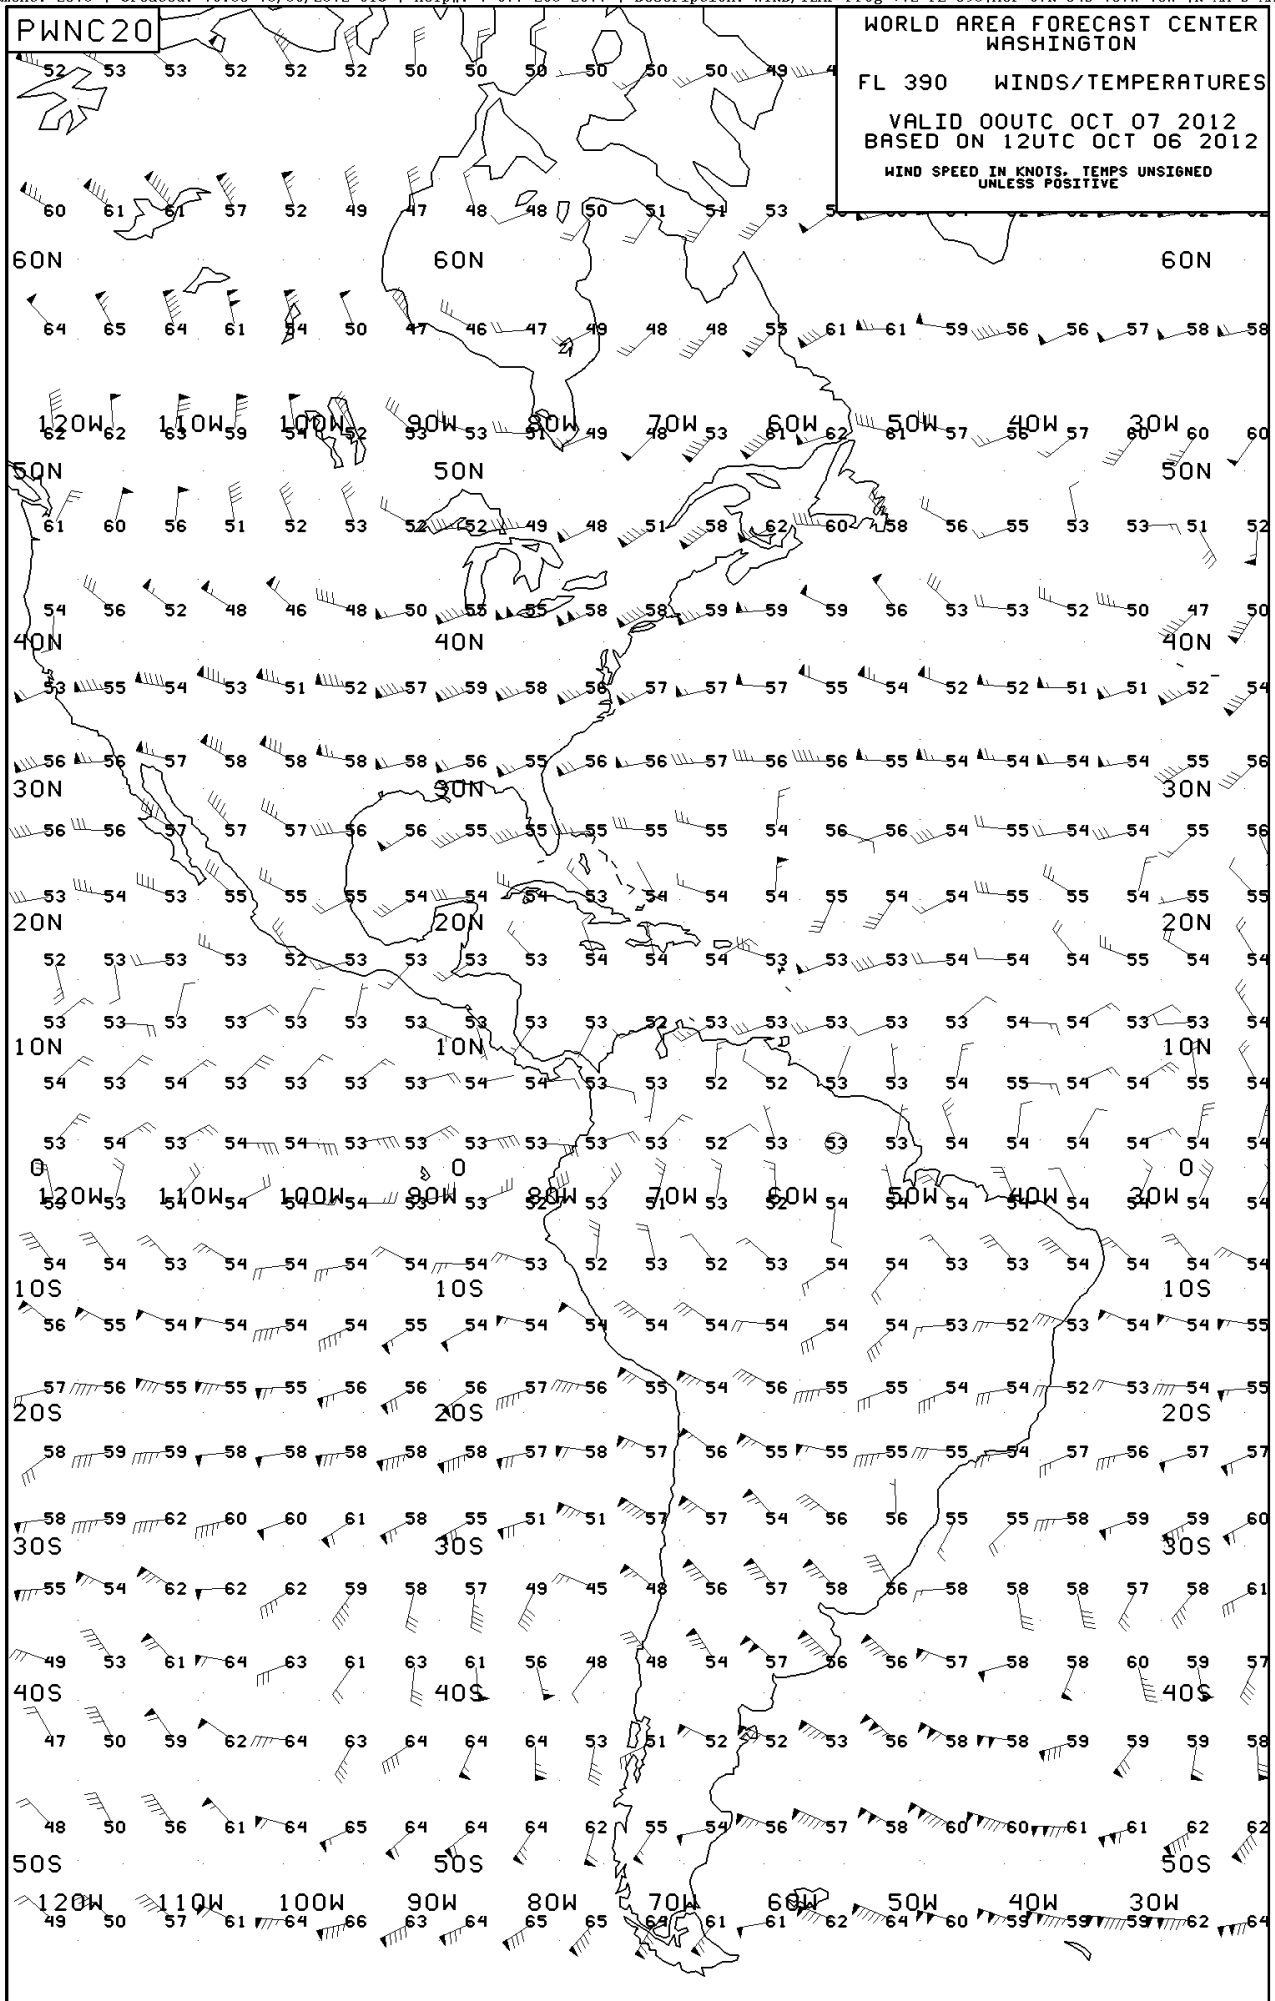 PWNC20
WORLD AREA FORECAST CENTER
WASHINGTON
FL 390 WINDS/TEMPERATURES
VALID 00UTC OCT 07 2012
BASED ON 12UTC OCT 06 2012
WIND SPEED IN KNOTS, TEMPS UNSIGNED
UNLESS POSITIVE
52 53 53 52 52 52 50 50 50 50 50 50 49
60 61 61 57 52 49 47 48 48 50 51 51 53
60N 60N 60N
64 65 64 61 54 50 47 46 47 49 48 48 55 61 61 59 56 56 57 58 58
120W 110W 100W 90W 80W 70W 60W 50W 40W 30W
62 62 63 59 54 52 53 53 51 49 48 53 61 62 61 57 56 57 60 60 60
50N 50N 50N
61 60 56 51 52 53 52 52 49 48 51 58 62 60 58 56 55 53 53 51 52
54 56 52 48 46 48 50 55 55 58 58 59 59 59 56 53 53 52 50 47 50
40N 40N 40N
53 55 54 53 51 52 57 59 58 56 57 57 57 55 54 52 52 51 51 52 54
56 56 57 58 58 58 58 56 55 56 56 57 56 56 55 54 54 54 54 55 56
30N 30N 30N
56 56 57 57 57 56 56 55 55 55 55 55 54 56 56 54 55 54 54 55 56
53 54 53 55 55 55 54 54 54 53 54 54 54 55 54 54 55 55 54 55 55
20N 20N 20N
52 53 53 53 52 53 53 53 53 54 54 54 53 53 53 54 54 54 55 54 54
53 53 53 53 53 53 53 53 53 53 52 53 53 53 53 53 54 54 53 53 54
10N 10N 10N
54 53 54 53 53 53 53 54 54 53 53 52 52 53 53 54 55 54 54 55 54
53 54 53 54 54 53 53 53 53 53 53 52 53 53 53 54 54 54 54 54 54
0 0 0
120W 110W 100W 90W 80W 70W 60W 50W 40W 30W
53 53 54 54 54 54 53 53 52 53 51 53 52 54 54 54 54 54 54 54 54
54 54 53 54 54 54 54 54 53 52 53 52 53 54 54 53 53 54 54 54 54
10S 10S 10S
56 55 54 54 54 54 55 54 54 54 54 54 54 54 54 53 52 53 54 54 55
57 56 55 55 55 56 56 56 57 56 55 54 56 55 55 54 54 52 53 54 55
20S 20S 20S
58 59 59 58 58 58 58 58 57 58 57 56 55 55 55 55 54 57 56 57 57
58 59 62 60 60 61 58 55 51 51 57 57 54 56 56 55 55 58 59 59 60
30S 30S 30S
55 54 62 62 62 59 58 57 49 45 48 56 57 58 56 58 58 58 57 58 61
49 53 61 64 63 61 63 61 56 48 48 54 57 56 56 57 58 58 60 59 57
40S 40S 40S
47 50 59 62 64 63 64 64 64 53 51 52 52 53 56 58 58 59 59 59 58
48 50 56 61 64 65 64 64 64 62 55 54 56 57 58 60 60 61 61 62 62
50S 50S 50S
120W 110W 100W 90W 80W 70W 60W 50W 40W 30W
49 50 57 61 64 66 63 64 65 65 61 61 62 64 60 59 59 59 62 64